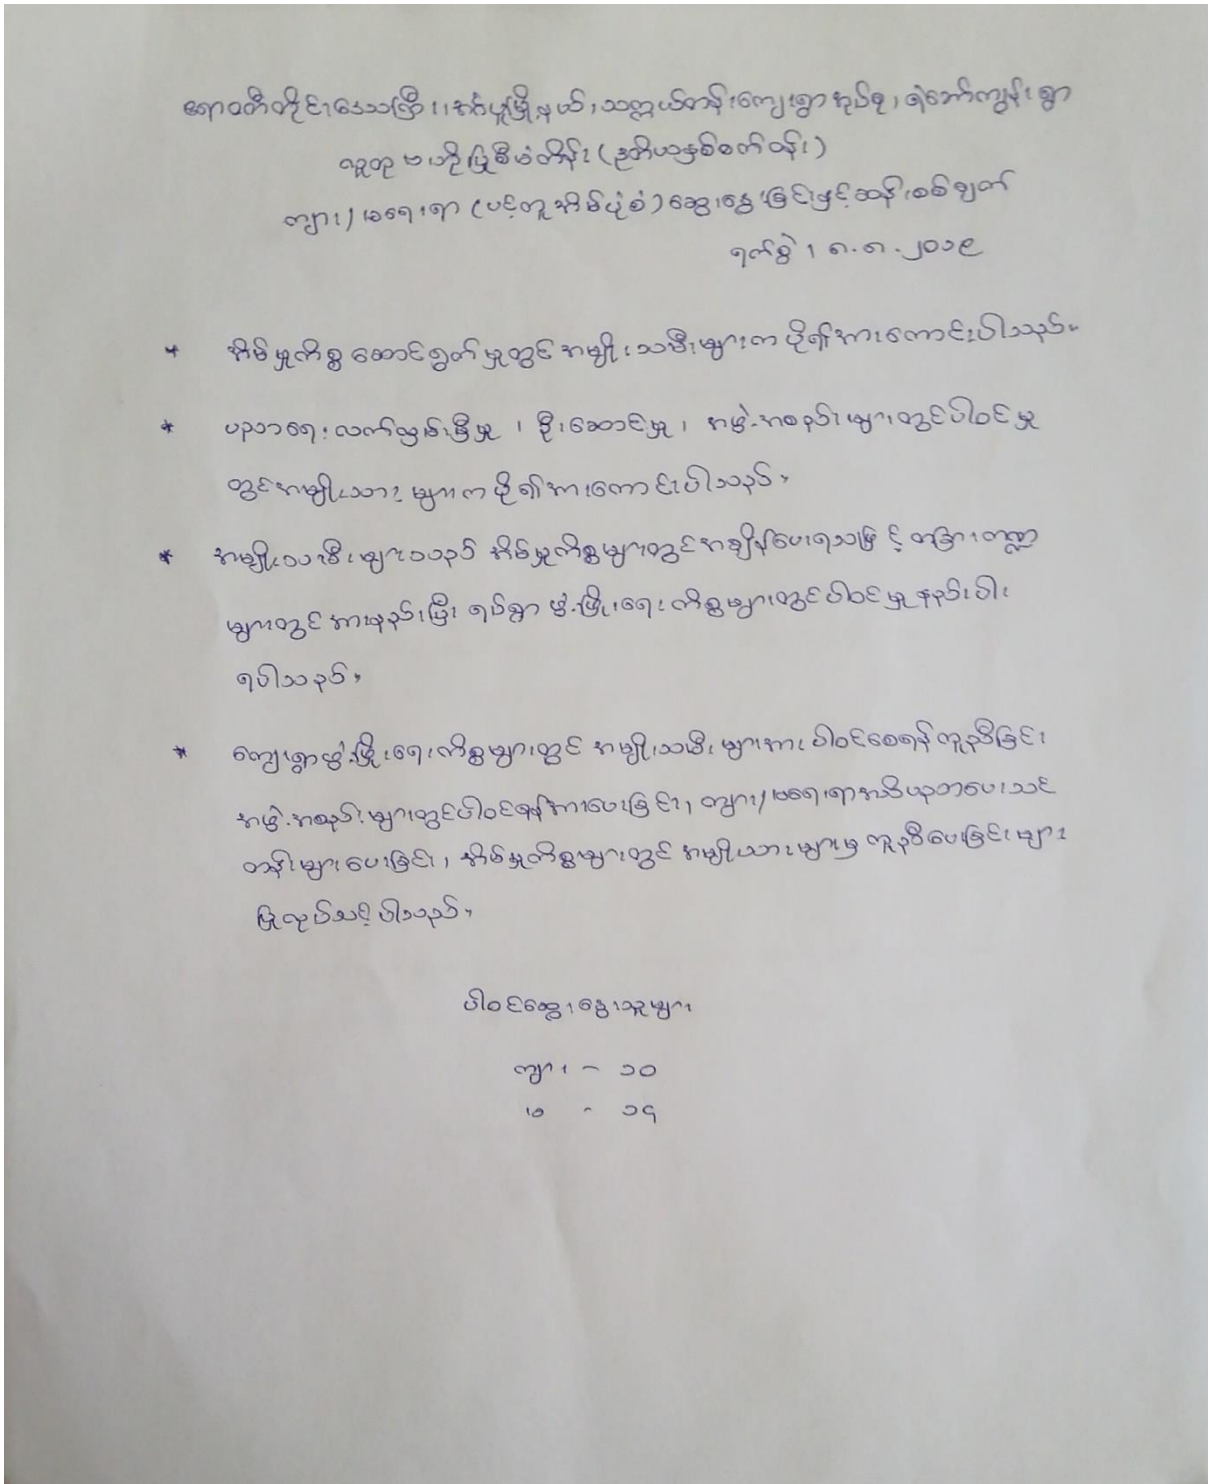 ဧရာဝတီတိုင်းဒေသကြီး၊ အင်္ဂပူမြို့နယ်၊ သက္ကယ်တန်းကျေးရွာအုပ်စု၊ ရဲဘော်ကျွန်းရွာ
လူထုဗဟိုပြုစီမံကိန်း (ဒုတိယနှစ်စက်ဝန်း)
ကျား/မရေးရာ (ပင့်ကူအိမ်ပုံစံ) ဆွေးနွေးခြင်းနှင့်ဆန်းစစ်ချက်
ရက်စွဲ ၊ ၈.၈.၂၀၁၉
* အိမ်မှုကိစ္စ ဆောင်ရွက်မှုတွင် အမျိုးသမီးများက ပို၍အားကောင်းပါသည်။
* ပညာရေး လက်လှမ်းမှီမှု ၊ ဦးဆောင်မှု ၊ အဖွဲ့အစည်းများတွင်ပါဝင်မှု
တွင်အမျိုးသားများက ပို၍အားကောင်းပါသည်။
* အမျိုးသမီးများသည် အိမ်မှုကိစ္စများတွင်အချိန်ပေးရသဖြင့် တခြားကဏ္ဍ
များတွင် အားနည်းပြီး ရပ်ရွာ ဖွံ့ဖြိုးရေးကိစ္စများတွင်ပါဝင်မှု နည်းပါး
ရပါသည်။
* ကျေးရွာဖွံ့ဖြိုးရေးကိစ္စများတွင် အမျိုးသမီးများအား ပါဝင်စေရန်ကူညီခြင်း
အဖွဲ့အစည်းများတွင်ပါဝင်ရန်အားပေးခြင်း၊ ကျား/မရေးရာအသိပညာပေးသင်
တန်းများပေးခြင်း၊ အိမ်မှုကိစ္စများတွင် အမျိုးသားများမှ ကူညီပေးခြင်းများ
ပြုလုပ်သင့်ပါသည်။
ပါဝင်ဆွေးနွေးသူများ
ကျား - ၁၀
မ - ၁၄